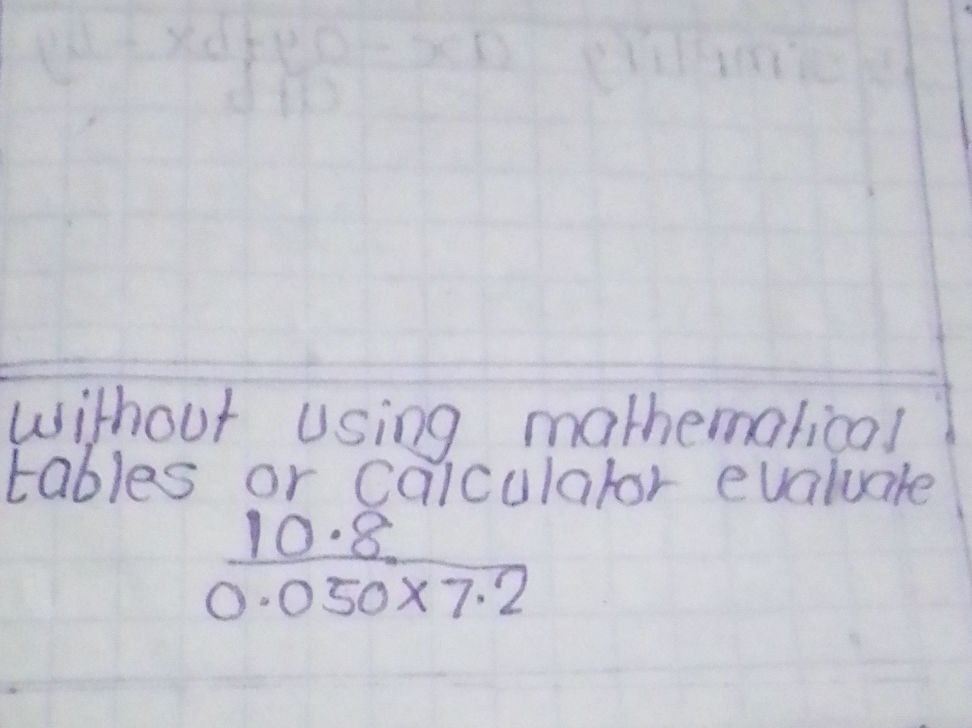 without using mathematical
tables or calculator evaluate
10.8
0.050 x 7.2